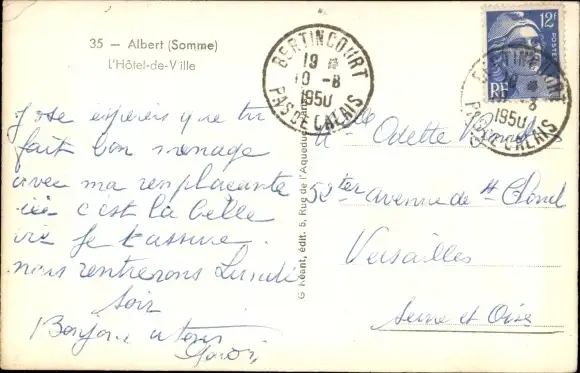 35 — Albert (Somme)
L'Hôtel-de-Ville
BERTINCOURT
19 *
10 -8
1950
PAS DE CALAIS
12F
POSTES
RF
BERTINCOURT
19 *
10 -8
1950
PAS DE CALAIS
J'ose espérer que tu
fait bon menage
avec ma remplaçante
ici c'est la belle
vie je t'assure.
nous rentrerons Lundi
soir
Bonjour a tous
G Réant, édit. 5, Rue de l'Aqueduc
Mlle Odette
52ter avenue de St Cloud
Versailles
Seine et Oise